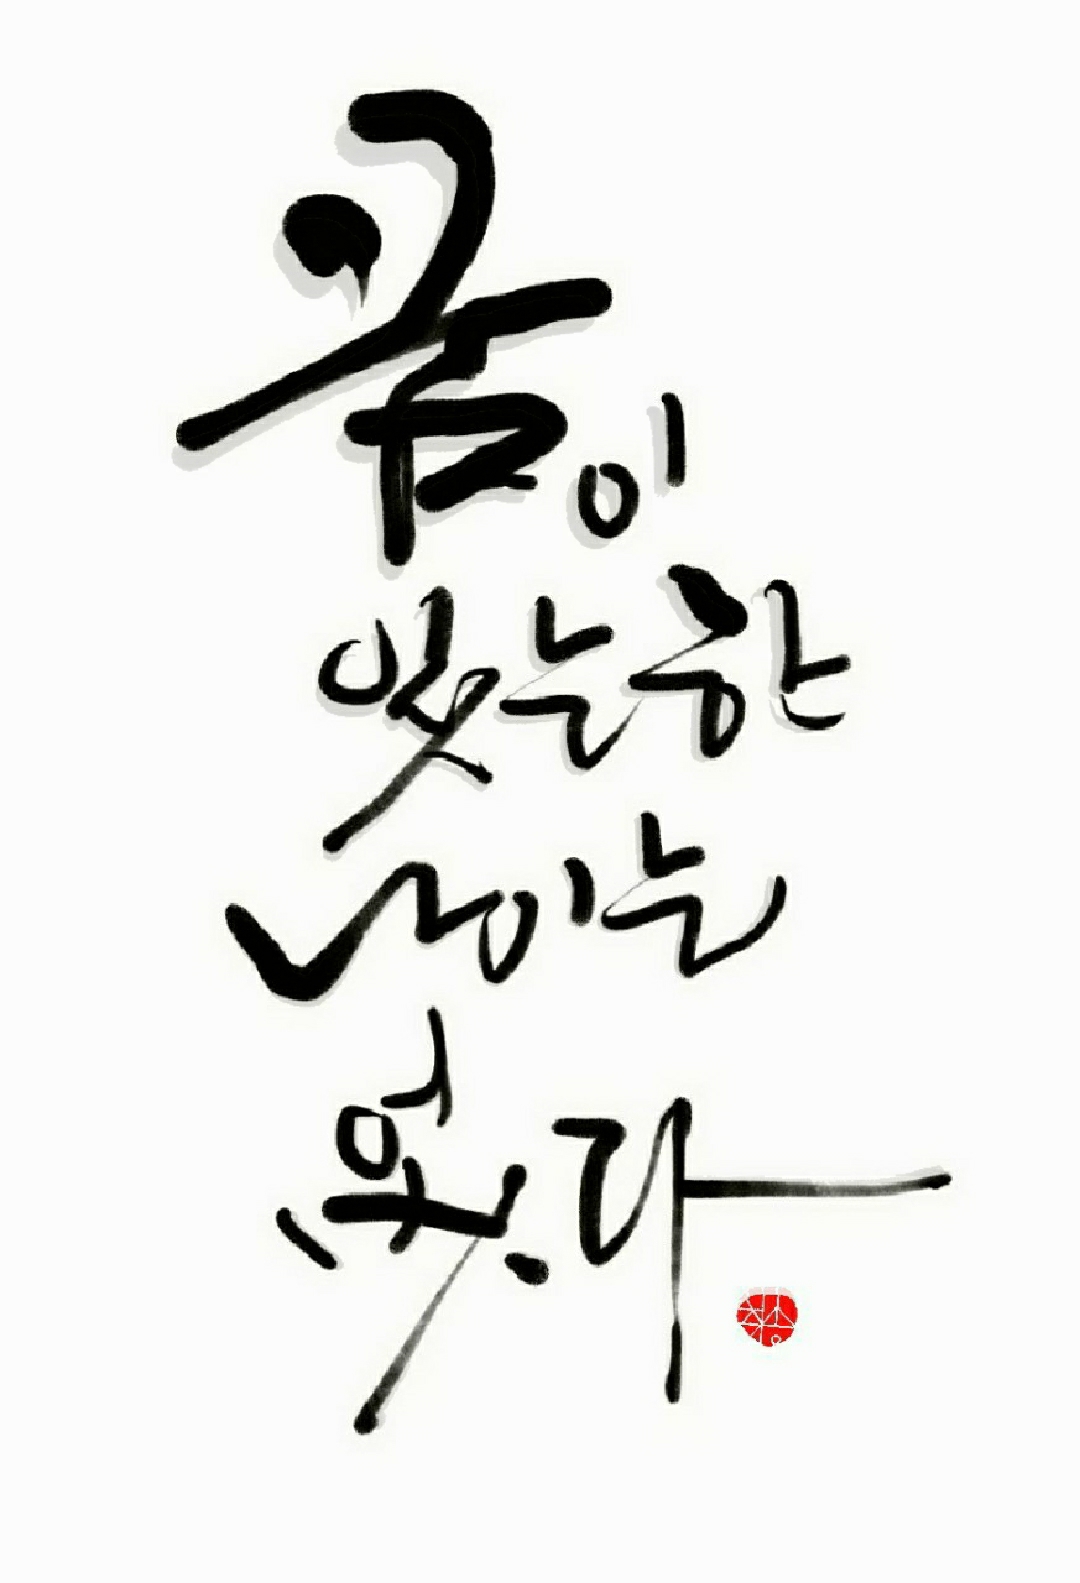 꿈이
있는한
나이는
없다